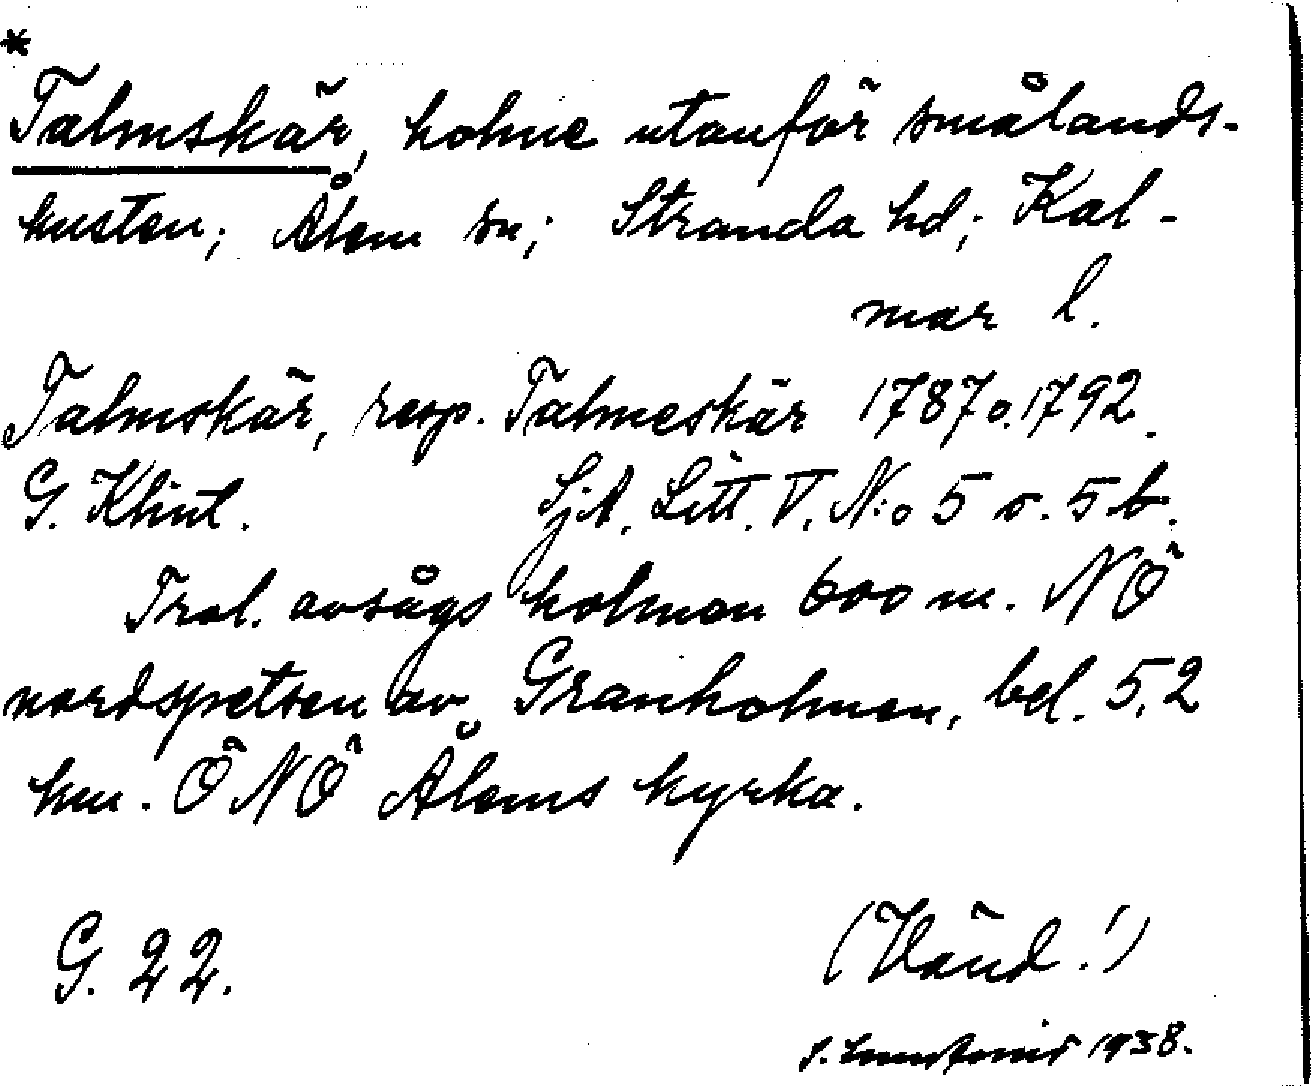 *
Talmskär, holme utanför smålands-
kusten; Ålem sn; Stranda hd; Kal-
mar l.
Talmskär, resp. Talmeskär 1787 o. 1792.
G. Klint. SjA. Litt. V. N:o 5 o. 5 b.
Trol. avsågs holmen 600 m. NÖ
nordspetsen av Granholmen, bel. 5,2
km. ÖNÖ Ålems kyrka.
G. 22. (Vänd!)
1938.